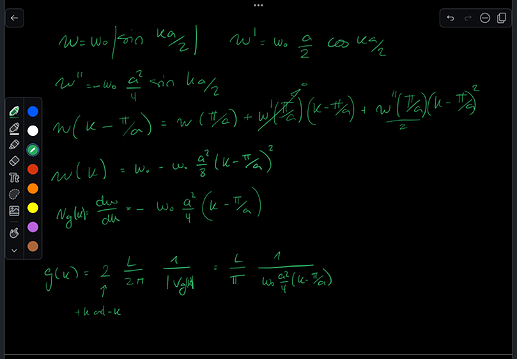 w = w₀ |sin ka/2|    w' = w₀ a/2 cos ka/2
w'' = -w₀ a²/4 sin ka/2
w(k - π/a) = w(π/a) + w'(π/a)(k - π/a) + w''(π/a)/2 (k - π/a)²
0
w(k) = w₀ - w₀ a²/8 (k - π/a)²
Vg(k) = dw/dk = - w₀ a²/4 (k - π/a)
g(k) = 2 L/2π 1/|Vg(k)| = L/π 1/(w₀ a²/4 (k - π/a))
↑
+k and -k